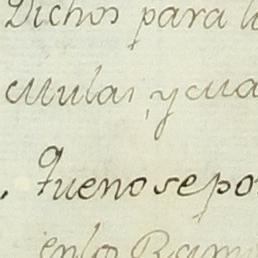 Dichos para l
cullar, y cua
Quenosepo
en los Ramo